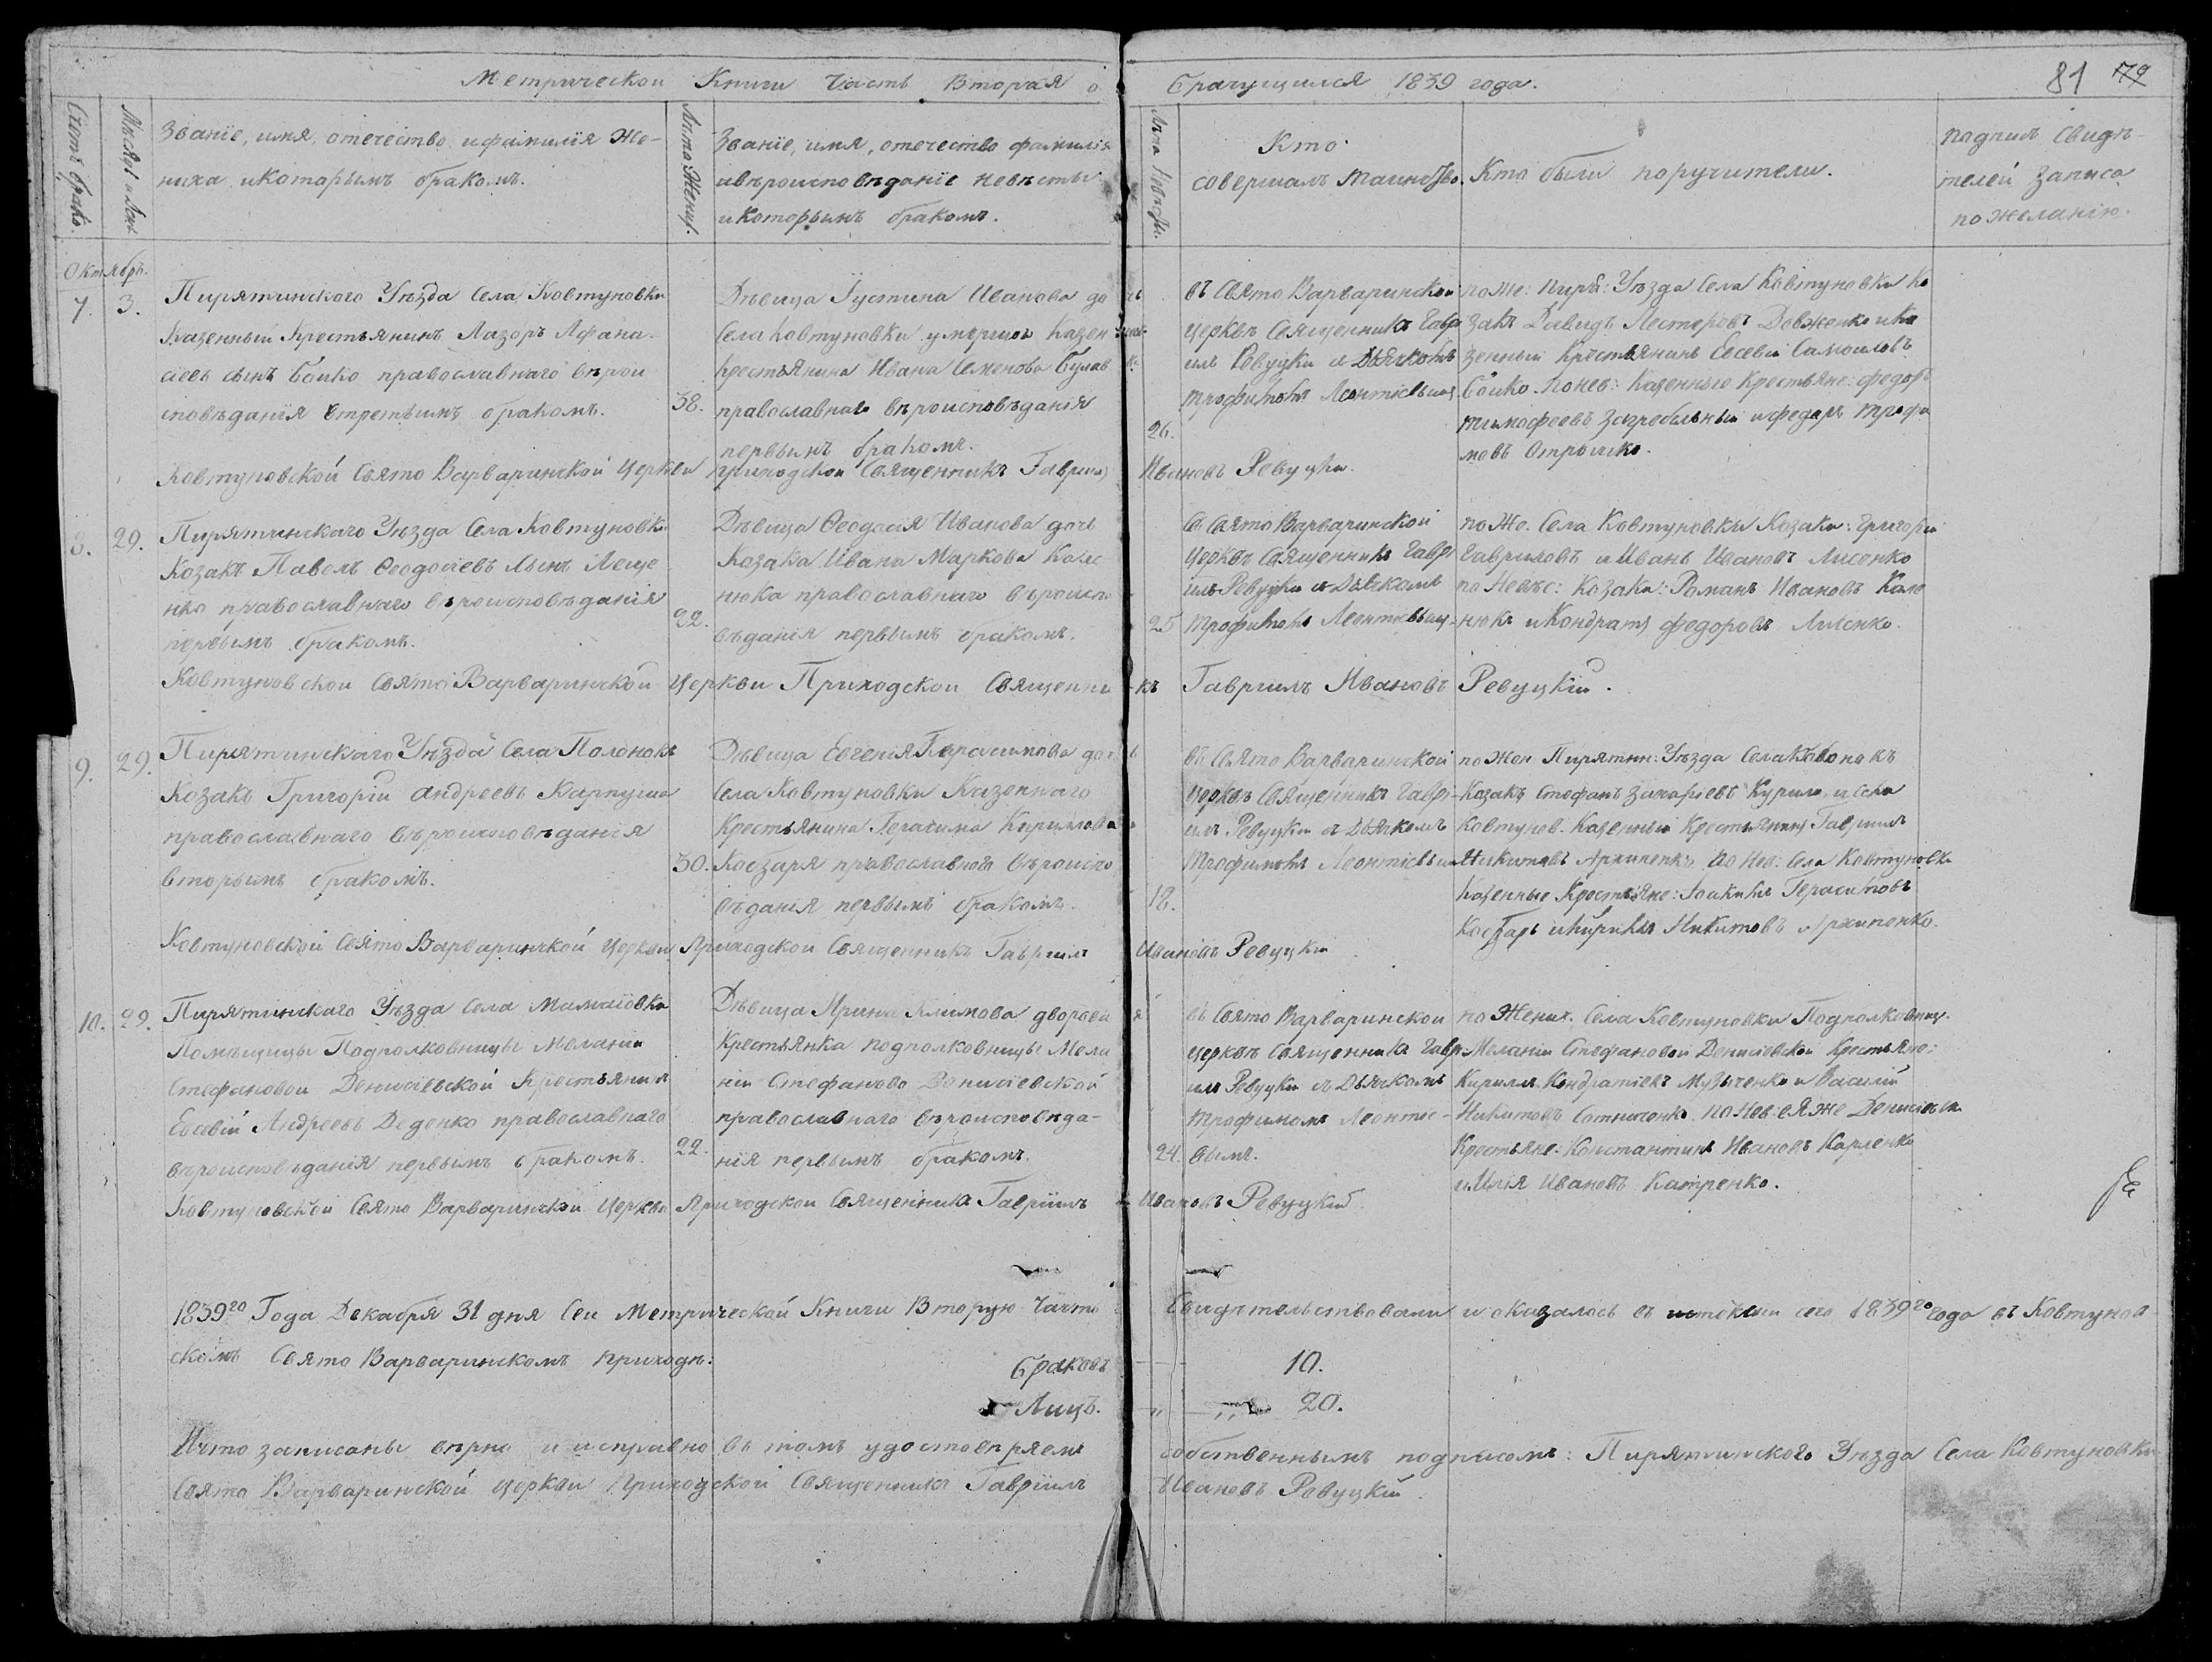 Метрической Книги Часть Вторая о Брачущихся 1839 года.
81 79
Счетъ брако.
Мѣсяц и день
Званіе, имя, отечество, и фамилія Же-
ниха и которымъ бракомъ.
Лѣта Жених.
Званіе, имя, отечество фамилія
и вѣроисповѣданіе невѣсты
и которымъ бракомъ.
Лѣта Невѣсты.
Кто
совершалъ таинство.
Кто были поручители.
подпись свидѣ-
телей записа
по желанію.
Октябрь.
7. 3.
Пирятинского Уѣзда Села Ковтуновки
Казенный Крестьянинъ Лазоръ Афана-
сіевъ сынъ Бойко православнаго вѣрои
сповѣданія третьимъ бракомъ.
38.
Дѣвица Густина Иванова дочь
Села Ковтуновки умершого Казен
Крестьянина Ивана Семенова Булав
православнаго вѣроисповѣданія
первымъ бракомъ.
26.
въ Свято Варваринской
церквѣ Священникъ Гаврі
илъ Ревуцки и Дьячкомъ
Трофимомъ Леонтіевым
по Же: Пиря: Уѣзда Села Ковтуновки Ко
закъ Давидъ Нестеровъ Довженко и Ка
зенный Крестьянинъ Евсевій Самоиловъ
Бойко. по нев: Казенные Крестьяне: Федоръ
Тимофеевъ Загребельный и Федоръ Трофи
мовъ Отрышко.
Ковтуновской Свято Варваринской Церкви приходской Священникъ Гавриилъ Ивановъ Ревуцки.
8. 29.
Пирятинскаго Уѣзда Села Ковтуновки
Козакъ Павелъ Феодосіевъ сынъ Леще
нко православнаго вѣроисповѣданія
первымъ бракомъ.
22.
Дѣвица Феодосія Иванова дочь
Козака Ивана Маркова Коле
нюка православнаго вѣроиспо
вѣданія первымъ бракомъ.
25
въ Свято Варваринской
Церквѣ Священникъ Гаврі
илъ Ревуцки съ Дьячкомъ
Трофимомъ Леонтіевым
по Же. Села Ковтуновки Козаки: Григорій
Гавриловъ и Иванъ Ивановъ Лисенко
по Невѣс: Козаки: Романъ Ивановъ Коле
нюкъ и Кондратъ Федоровъ Лисенко.
Ковтуновской Свято Варваринской Церкви Приходской Священникъ Гавриилъ Ивановъ Ревуцкій.
9. 29.
Пирятинскаго Уѣзда Села Полонокъ
Козакъ Григорій Андреевъ Карпуша
православнаго вѣроисповѣданія
вторымъ бракомъ.
30.
Дѣвица Евгенія Герасимова дочь
Села Ковтуновки Казеннаго
Крестьянина Герасима Кирилова
Косзаря православнаго вѣроиспо
вѣданія первымъ бракомъ.
18.
въ Свято Варваринской
Церквѣ Священникъ Гаврі-
илъ Ревуцки съ Дьячкомъ
Трофимомъ Леонтіевым
по Жен Пирятин: Уѣзда Села
Козакъ Стефанъ Захаріевъ Курило, и Села
Ковтунов. Казенный Крестьянинъ Гавриилъ
Никитовъ Архипенко. По Нев: Села Ковтуновки
Казенные Крестьяне: Іоакимъ Герасимовъ
Косзарь и Кирилъ Никитовъ Архипенко.
Ковтуновской Свято Варваринской Церкви Приходской Священникъ Гавриилъ Ивановъ Ревуцки
10. 29.
Пирятинскаго Уѣзда Села Мамаіовки
Помѣщицы Подполковницы Меланіи
Стефановой Денисіевской Крестьянинъ
Евсевій Андреевъ Деденко православнаго
вѣроисповѣданія первымъ бракомъ.
22.
Дѣвица Ирина Климова дворовая
Крестьянка подполковницы Мела
ніи Стефановo Денисіевской
православнаго вѣроисповѣда-
нія первымъ бракомъ.
24.
въ Свято Варваринской
Церквѣ Священникъ Гаврі
илъ Ревуцки съ Дьячкомъ
Трофимомъ Леонтіе-
вымъ.
по Жених. Села Ковтуновки Подполковниц.
Меланіи Стефановой Денисіевской Крестьяне:
Кирилъ Кондратіевъ Музыченко и Василій
Никитовъ Сотниченко. по Нев: ея же Денисіевск
Крестьяне: Константинъ Ивановъ Карпенко
и Илія Ивановъ Катренко.
Ковтуновской Свято Варваринской Церкви Приходской Священникъ Гавріилъ Ивановъ Ревуцкій
1839го Года Декабря 31 дня Сей Метрической Книги Вторую Часть Свидѣтельствовали и оказалось въ истекшемъ сего 1839го года въ Ковтунов-
скомъ Свято Варваринскомъ Приходѣ:
Браковъ 10.
Лицъ. 20.
И что записаны вѣрно и исправно въ томъ удостовѣряемъ собственнымъ подписомъ: Пирятинского Уѣзда Села Ковтуновки
Свято Варваринской Церкви Приходской Священникъ Гавріилъ Ивановъ Ревуцкій.